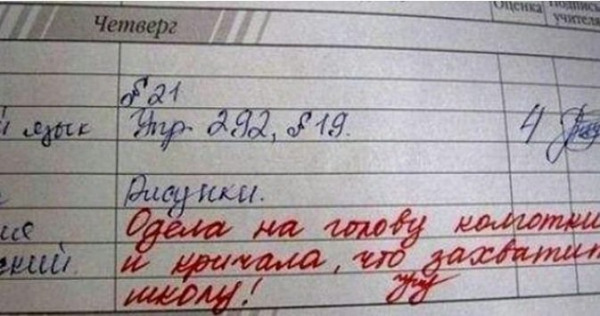 Оценка Подпись учителя
Четверг
§ 21
й язык Упр. 292, § 19. 4
Рисунки.
Одела на голову колготки
ский и кричала, что захватит
школу!